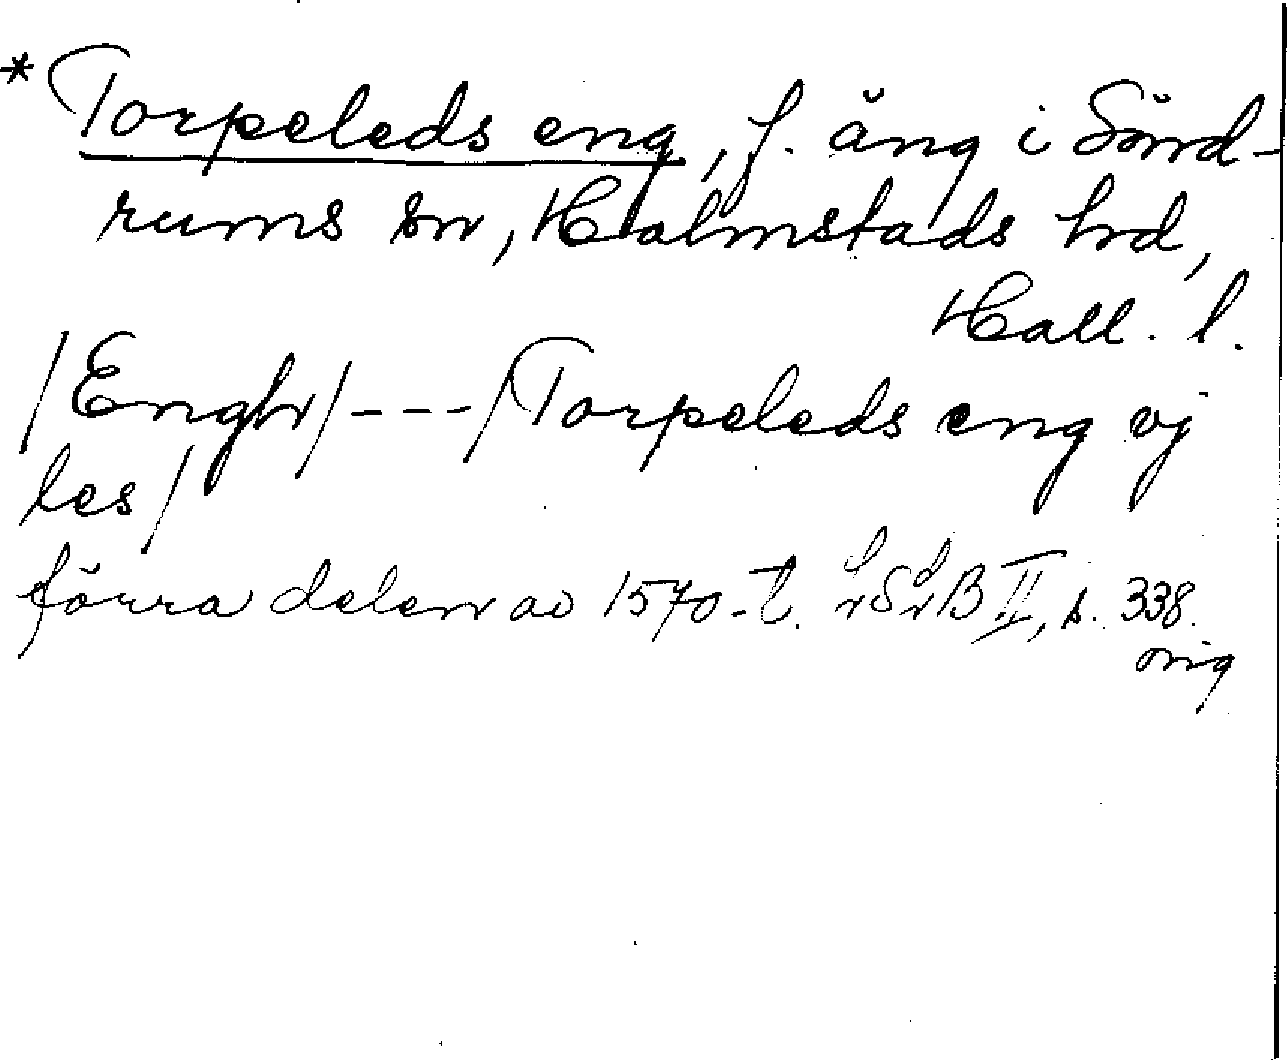 *Torpeleds eng, f. äng i Sönd-
rums sn, Halmstads hrd,
Hall. l.
/Enghr/ --- /Torpeleds eng vj
les/
förra delen av 1570-t. B II, s. 338.
orig